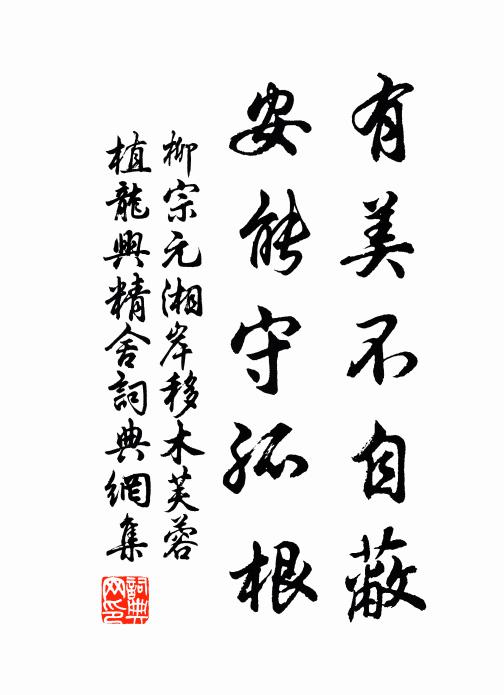 有美不自蔽
安能守孤根
柳宗元湘岸移木芙蓉
植龍興精舍詞典網集
詞典網印